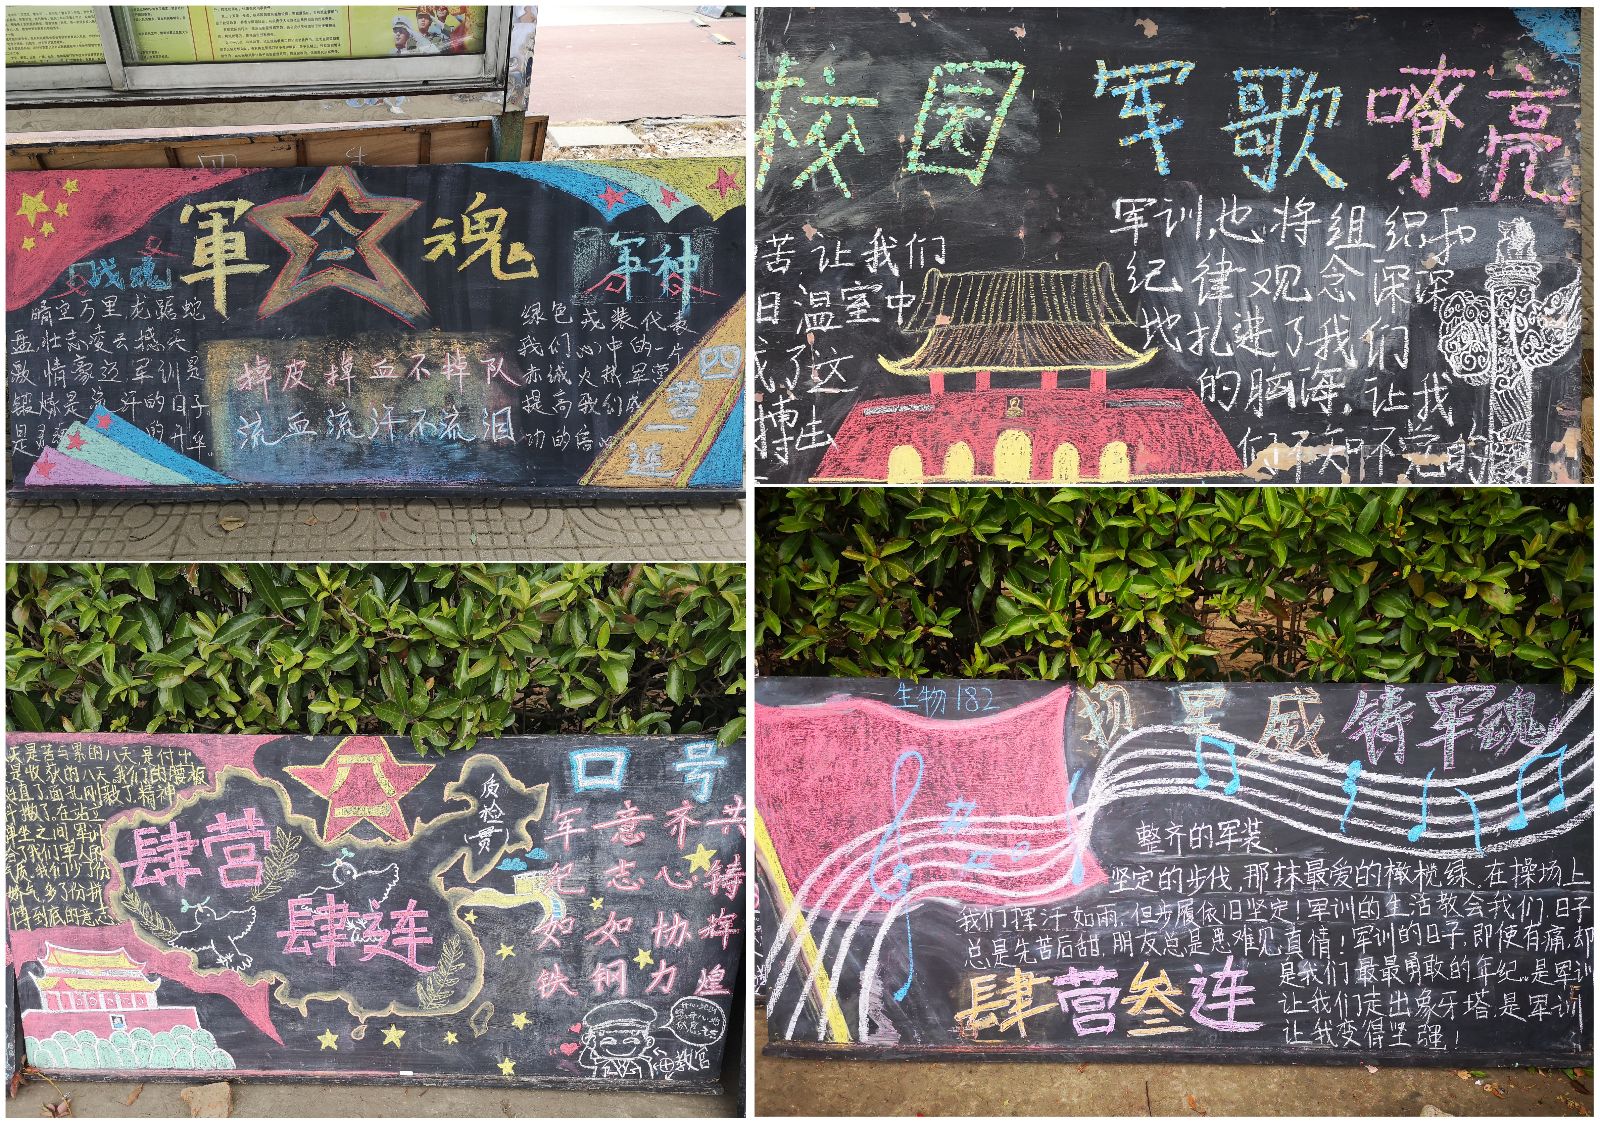 軍 八一 魂
战魂
军神
晴空万里龙踞蛇
盘,壮志凌云撼天
激情豪迈军训是
锻炼是流汗的日子
的升华
掉皮掉血不掉队
流血流汗不流泪
绿色戎装代表
我们心中的一片
赤诚火热军营
提高我们成
功的信心
四营一连
校园军歌嘹亮
苦让我们
日温室中
成了这
博出
军训,也将组织和
纪律观念深深
地扎进了我们
的脑海,让我
们不知不觉的
天是苦与累的八天,是付出
是收获的八天,我们的腰板
挺直了,面孔刚毅了,精神
抖擞了。在站立
蹲坐之间军训
给了我们军人的
气质。我们少了份
娇气,多了份拼
博到底的意志
八一
肆营
肆连
质检(贯)
口号
军意齐共
纪志心铸
如如协辉
铁钢力煌
教官
生物182
扬军威铸军魂
整齐的军装,
坚定的步伐,那抹最爱的橄榄绿,在操场上
我们挥汗如雨,但步履依旧坚定!军训的生活教会我们,日子
总是先苦后甜,朋友总是患难见真情!军训的日子,即使有痛,却
是我们最最勇敢的年纪。是军训
让我们走出象牙塔,是军训
让我变得坚强!
肆营叁连